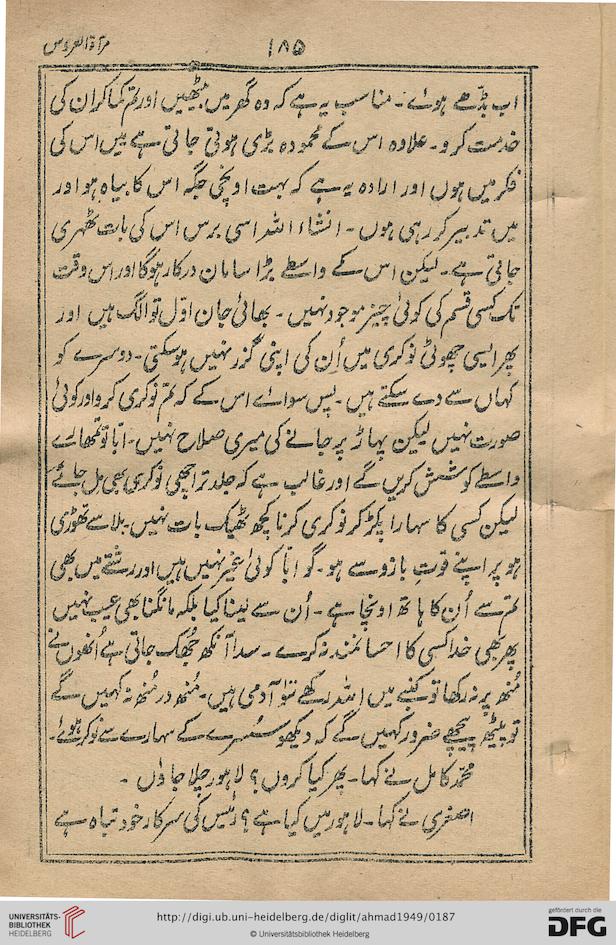 مرآۃ العروس
۱۸۵
اب بڈھے ہوئے۔ مناسب یہ ہے کہ وہ گھر میں بیٹھیں اور تم کما کر ان کی
خدمت کرو۔ علاوہ اس کے محمودہ بڑی ہوتی جاتی ہے میں اس کی
فکر میں ہوں اور ارادہ یہ ہے کہ بہت اونچی جگہ اس کا بیاہ ہو اور
میں تدبیر کر رہی ہوں۔ انشاء اللہ اسی برس اس کی بات ٹھہری
جاتی ہے۔ لیکن اس کے واسطے بڑا سامان درکار ہوگا اور اس وقت
تک کسی قسم کی کوئی چیز موجود نہیں۔ بھائی جان اوّل تو الگ ہیں اور
پھر ایسی چھوٹی نوکری میں اُن کی اپنی گزر نہیں ہو سکتی۔ دوسرے کو
کہاں سے دے سکتے ہیں۔ پس سوائے اس کے کہ تم نوکری کرو اور کوئی
صورت نہیں لیکن پہاڑ پر جانے کی میری صلاح نہیں۔ ابّا تو تمھارے
واسطے کوشش کریں گے اور غالب ہے کہ جلد تر اچھی نوکری بھی مل جائے
لیکن کسی کا سہارا پکڑ کر نوکری کرنا کچھ ٹھیک بات نہیں۔ بلا سے تھوڑی
ہو پر اپنے قوتِ بازو سے ہو۔ گو ابّا کوئی غیر نہیں ہیں اور رشتے میں بھی
تم سے اُن کا ہاتھ اونچا ہے۔ اُن سے لینا کیا بلکہ مانگنا بھی عیب نہیں
پھر بھی خدا کسی کا احسانمند نہ کرے۔ سدا آنکھ جُھک جاتی ہے اُنھوں نے
مُنھ پر نہ رکھا تو کنبے میں اللہ رکھے سَو آدمی ہیں۔ مُنھ در مُنھ نہ کہیں گے
تو پیٹھ پیچھے ضرور کہیں گے کہ دیکھو سسرے کے سہارے سے نوکر ہوئے۔
محمد کامل نے کہا۔ پھر کیا کروں؟ لاہور چلا جاؤں۔
اصغری نے کہا۔ لاہور میں کیا ہے؟ رئیس کی سرکار خود تباہ ہے
UNIVERSITÄTS-
BIBLIOTHEK
HEIDELBERG
http://digi.ub.uni-heidelberg.de/diglit/ahmad1949/0187
© Universitätsbibliothek Heidelberg
gefördert durch die
DFG